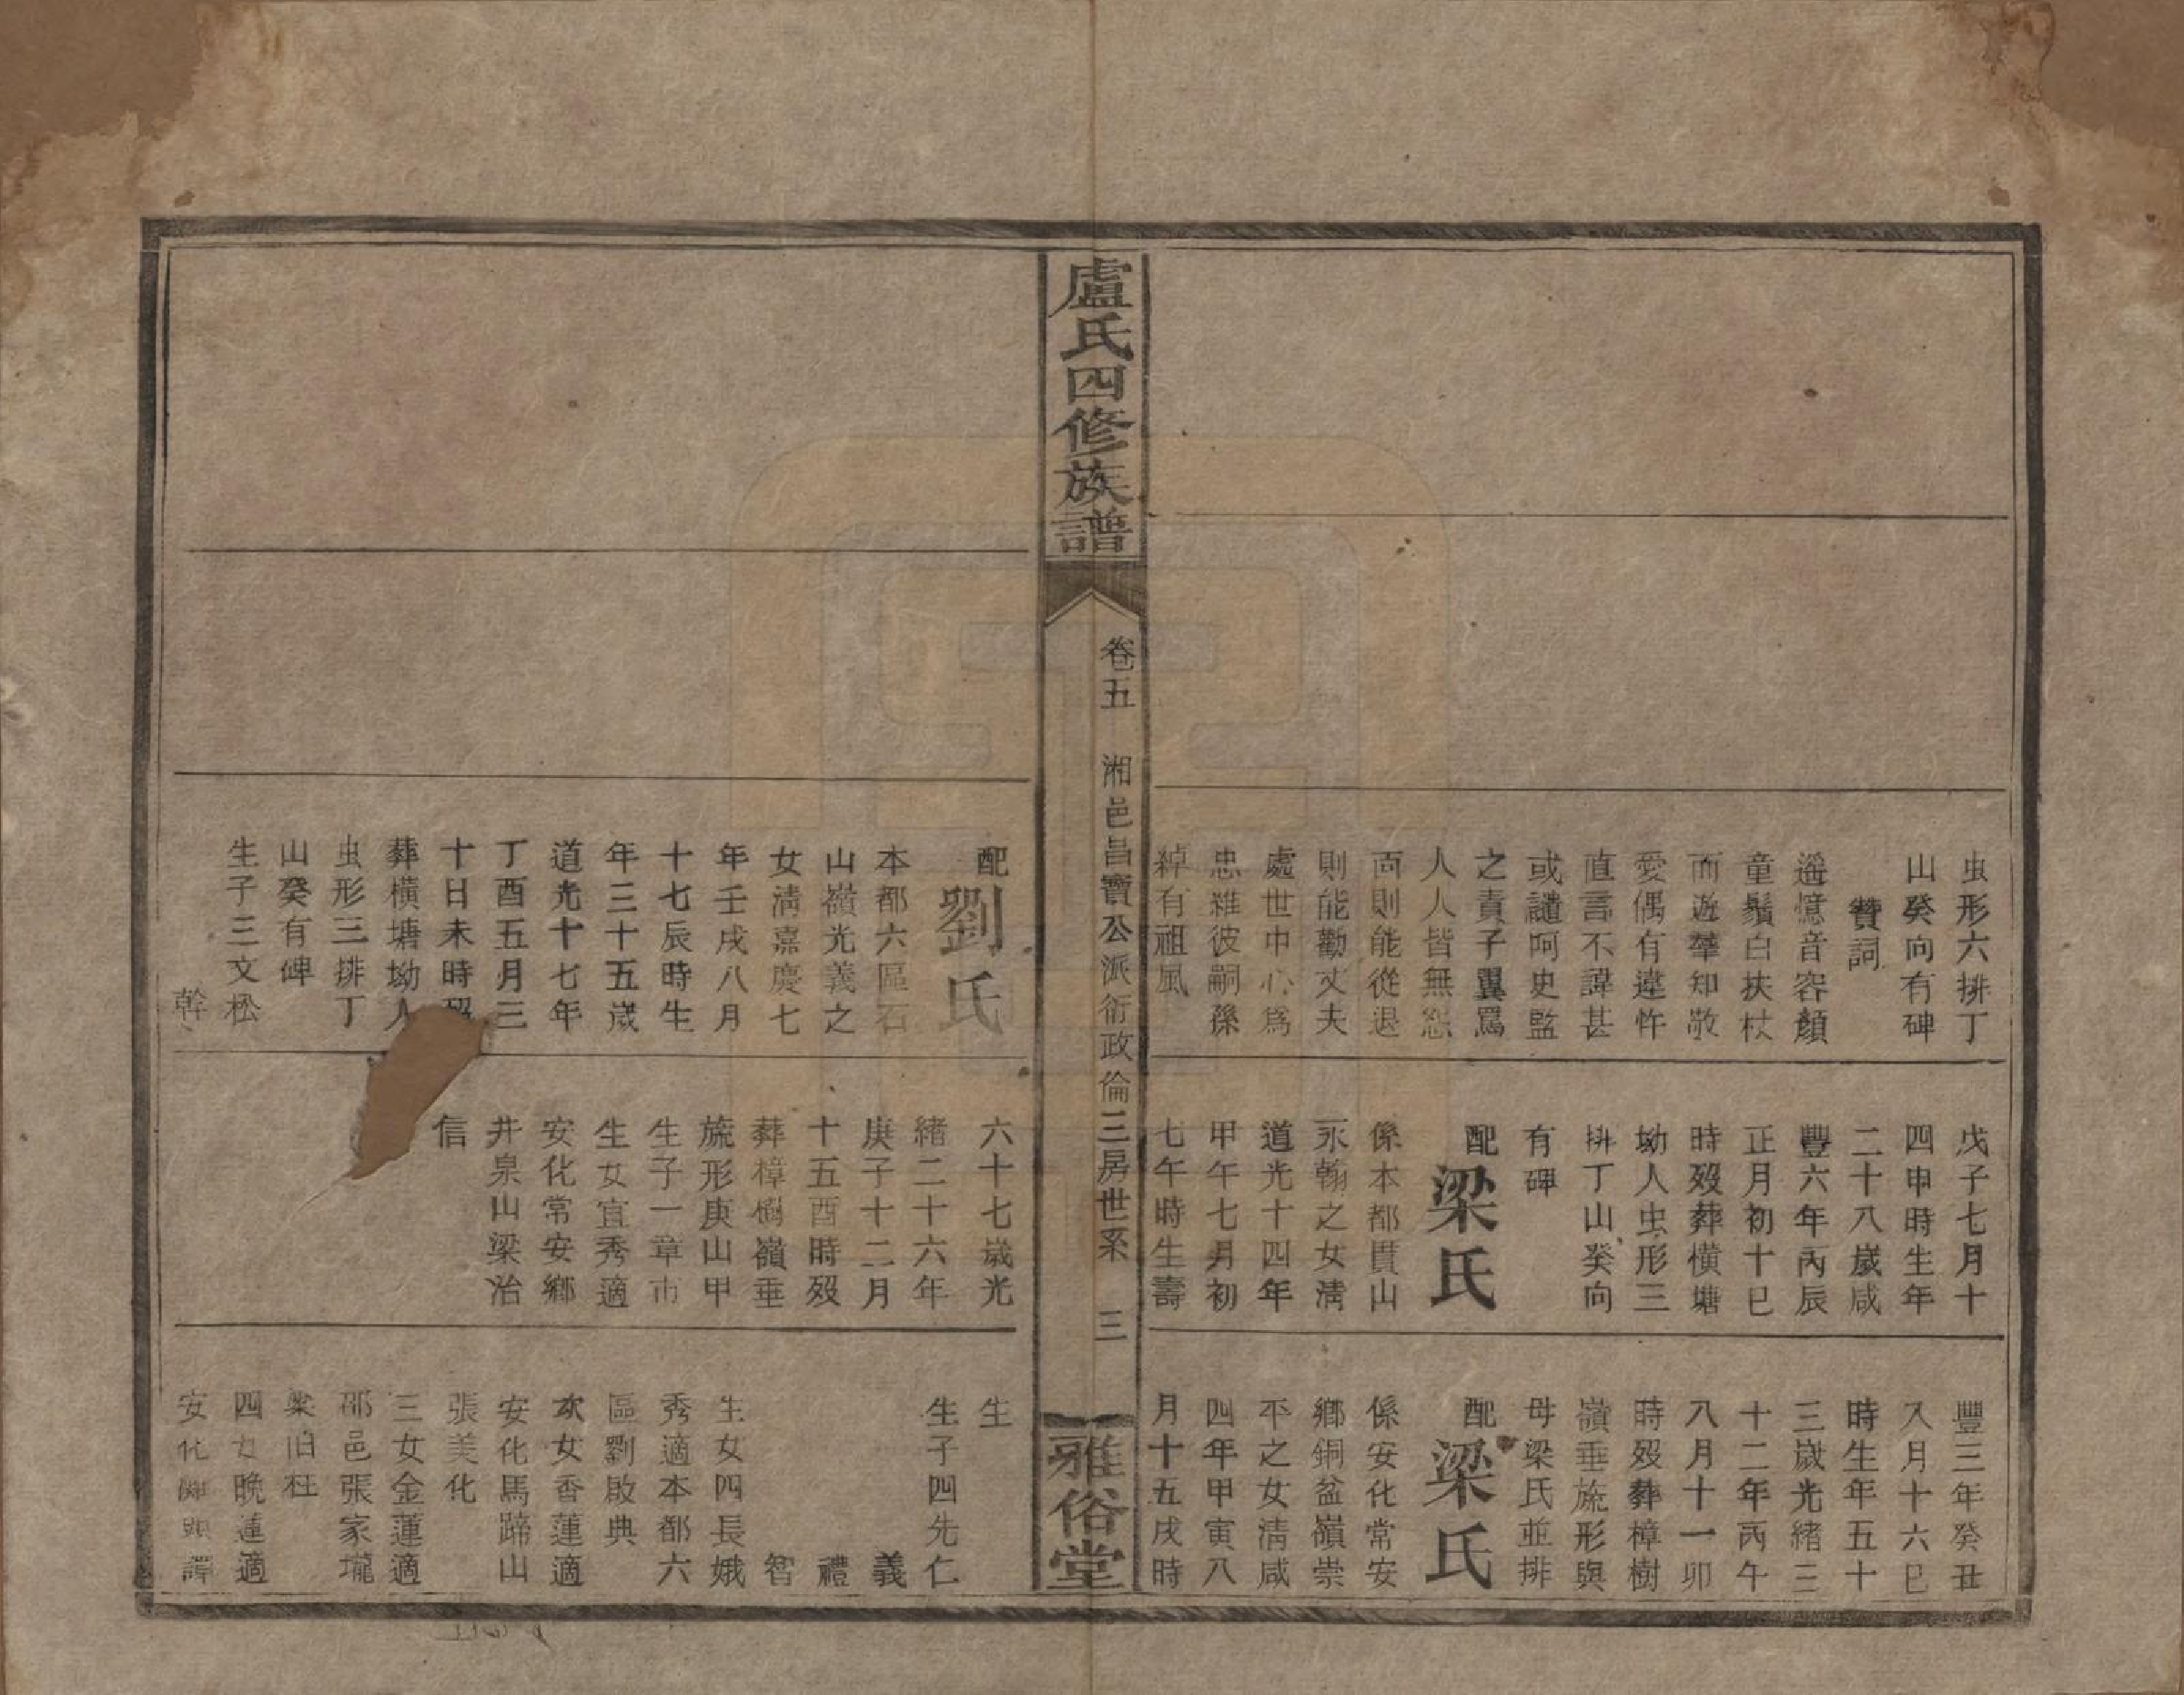 虫形六排丁
山癸向有碑
贊詞
遥憶音容顏
童鬚白扶杖
而遊羣知敬
愛偶有違忤
直言不諱甚
或譴呵史監
之責子翼罵
人人皆無怨
面則能從退
則能勸丈夫
處世中心爲
忠雖彼嗣孫
綽有祖風
戊子七月十
四申時生年
二十八歲咸
豐六年丙辰
正月初十巳
時歿葬橫塘
坳人虫形三
排丁山癸向
有碑
配梁氏
係本都貫山
永翰之女清
道光十四年
甲午七月初
七午時生壽
豐三年癸丑
八月十六巳
時生年五十
三歲光緒三
十二年丙午
八月十一卯
時歿葬樟樹
嶺垂旒形與
母梁氏並排
配梁氏
係安化常安
鄉銅盆嶺崇
平之女清咸
四年甲寅八
月十五戌時
盧氏四修族譜
卷五 湘邑昌寶公派衍政倫三房世系 三
雅俗堂
配劉氏
本都六區石
山嶺光義之
女清嘉慶七
年壬戌八月
十七辰時生
年三十五歲
道光十七年
丁酉五月三
十日未時歿
葬橫塘坳人
虫形三排丁
山癸有碑
生子三文松
幹
六十七歲光
緒二十六年
庚子十二月
十五酉時歿
葬樟樹嶺垂
旒形庚山甲
生子一章市
生女宜秀適
安化常安鄉
井泉山梁治
信
生
生子四先仁
義
禮
智
生女四長娥
秀適本都六
區劉啟典
次女香蓮適
安化馬蹄山
張美化
三女金蓮適
邵邑張家壠
梁旧杜
四女晚蓮適
安化頭譚